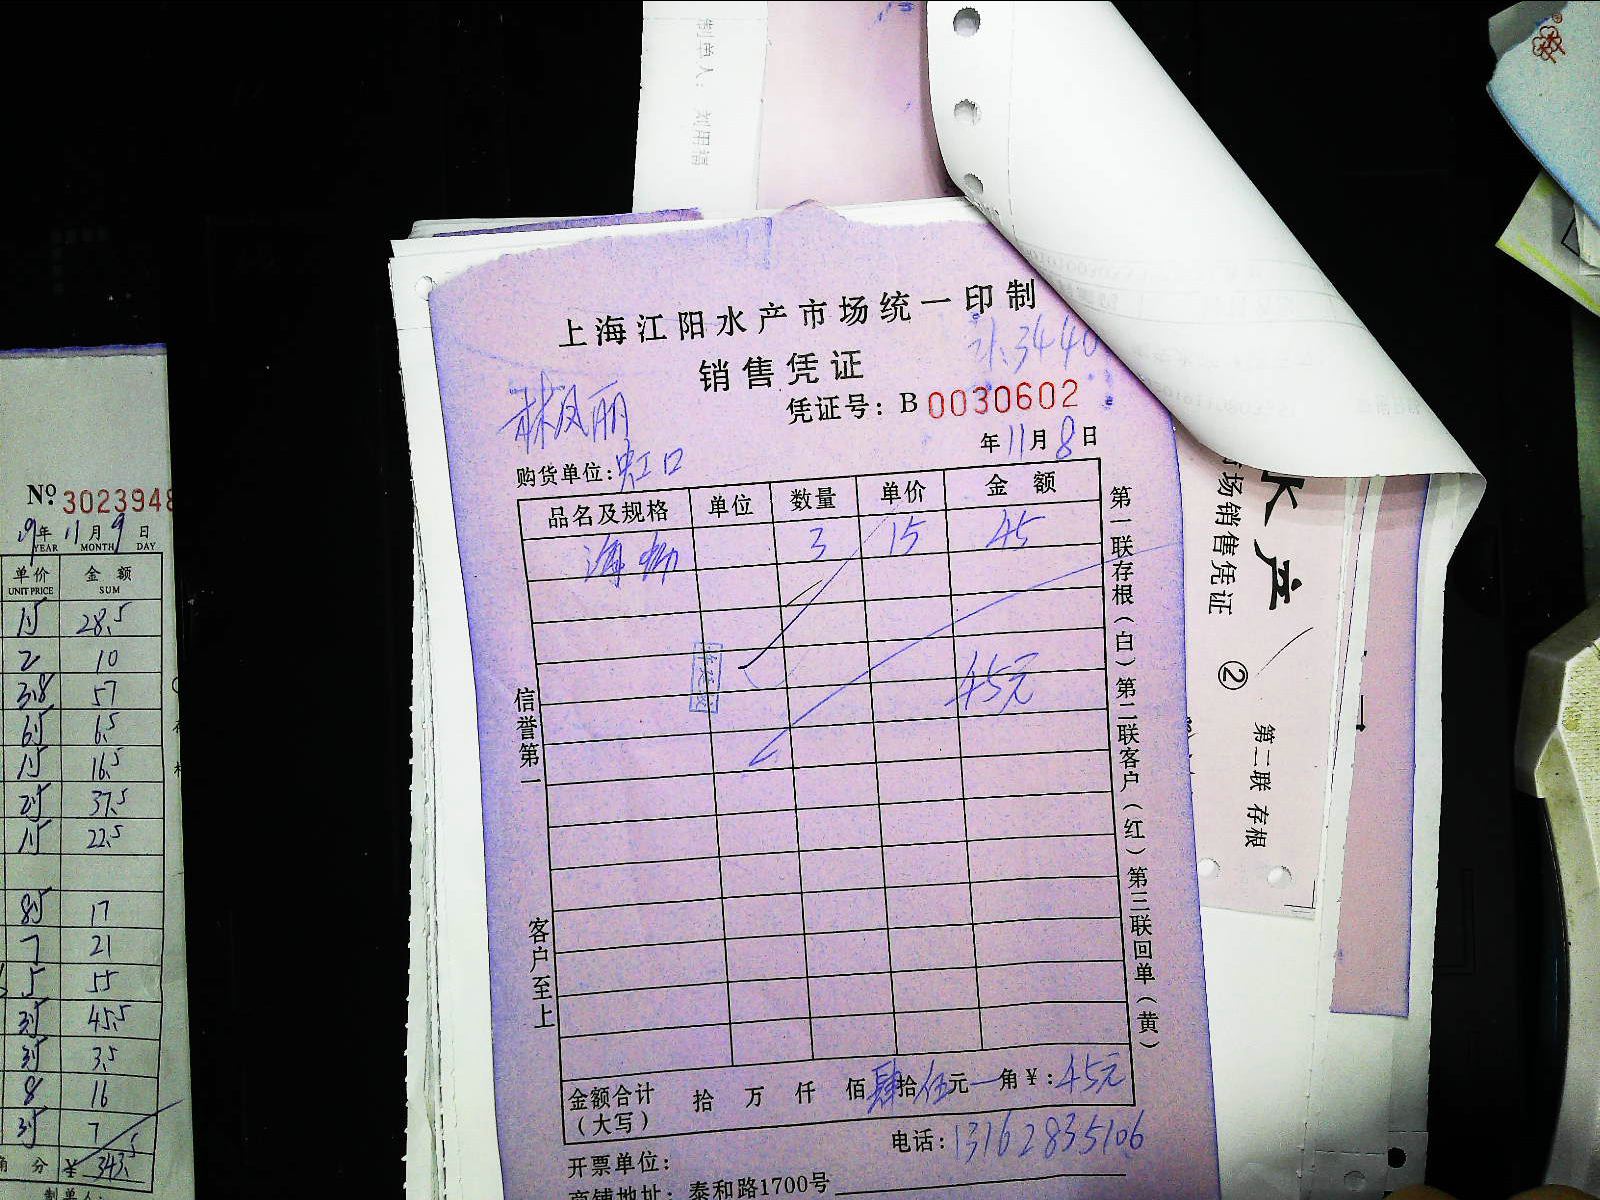 制单人：
上海江阳水产市场统一印制
销售凭证
3440
林凤丽
凭证号：B 0030602
年11月8日
购货单位：虹口
品名及规格 单位 数量 单价 金额
海 3 15 45
45元
信誉第一
客户至上
第一联存根（白）第二联客户（红）第三联回单（黄）
金额合计（大写） 拾 万 仟 佰 肆拾伍元 角¥：45元
电话：13162835106
开票单位：
商铺地址：泰和路1700号
№ 3023948
9年11月9日
YEAR MONTH DAY
单价 金额
UNIT PRICE SUM
15 28.5
2 10
3.8 57
65 6.5
15 16.5
25 37.5
15 22.5
85 17
7 21
5 55
35 45.5
35 3.5
8 16
35 7
角 分 ¥ 343.5
制单人：
水产
市场销售凭证
②
第二联 存根